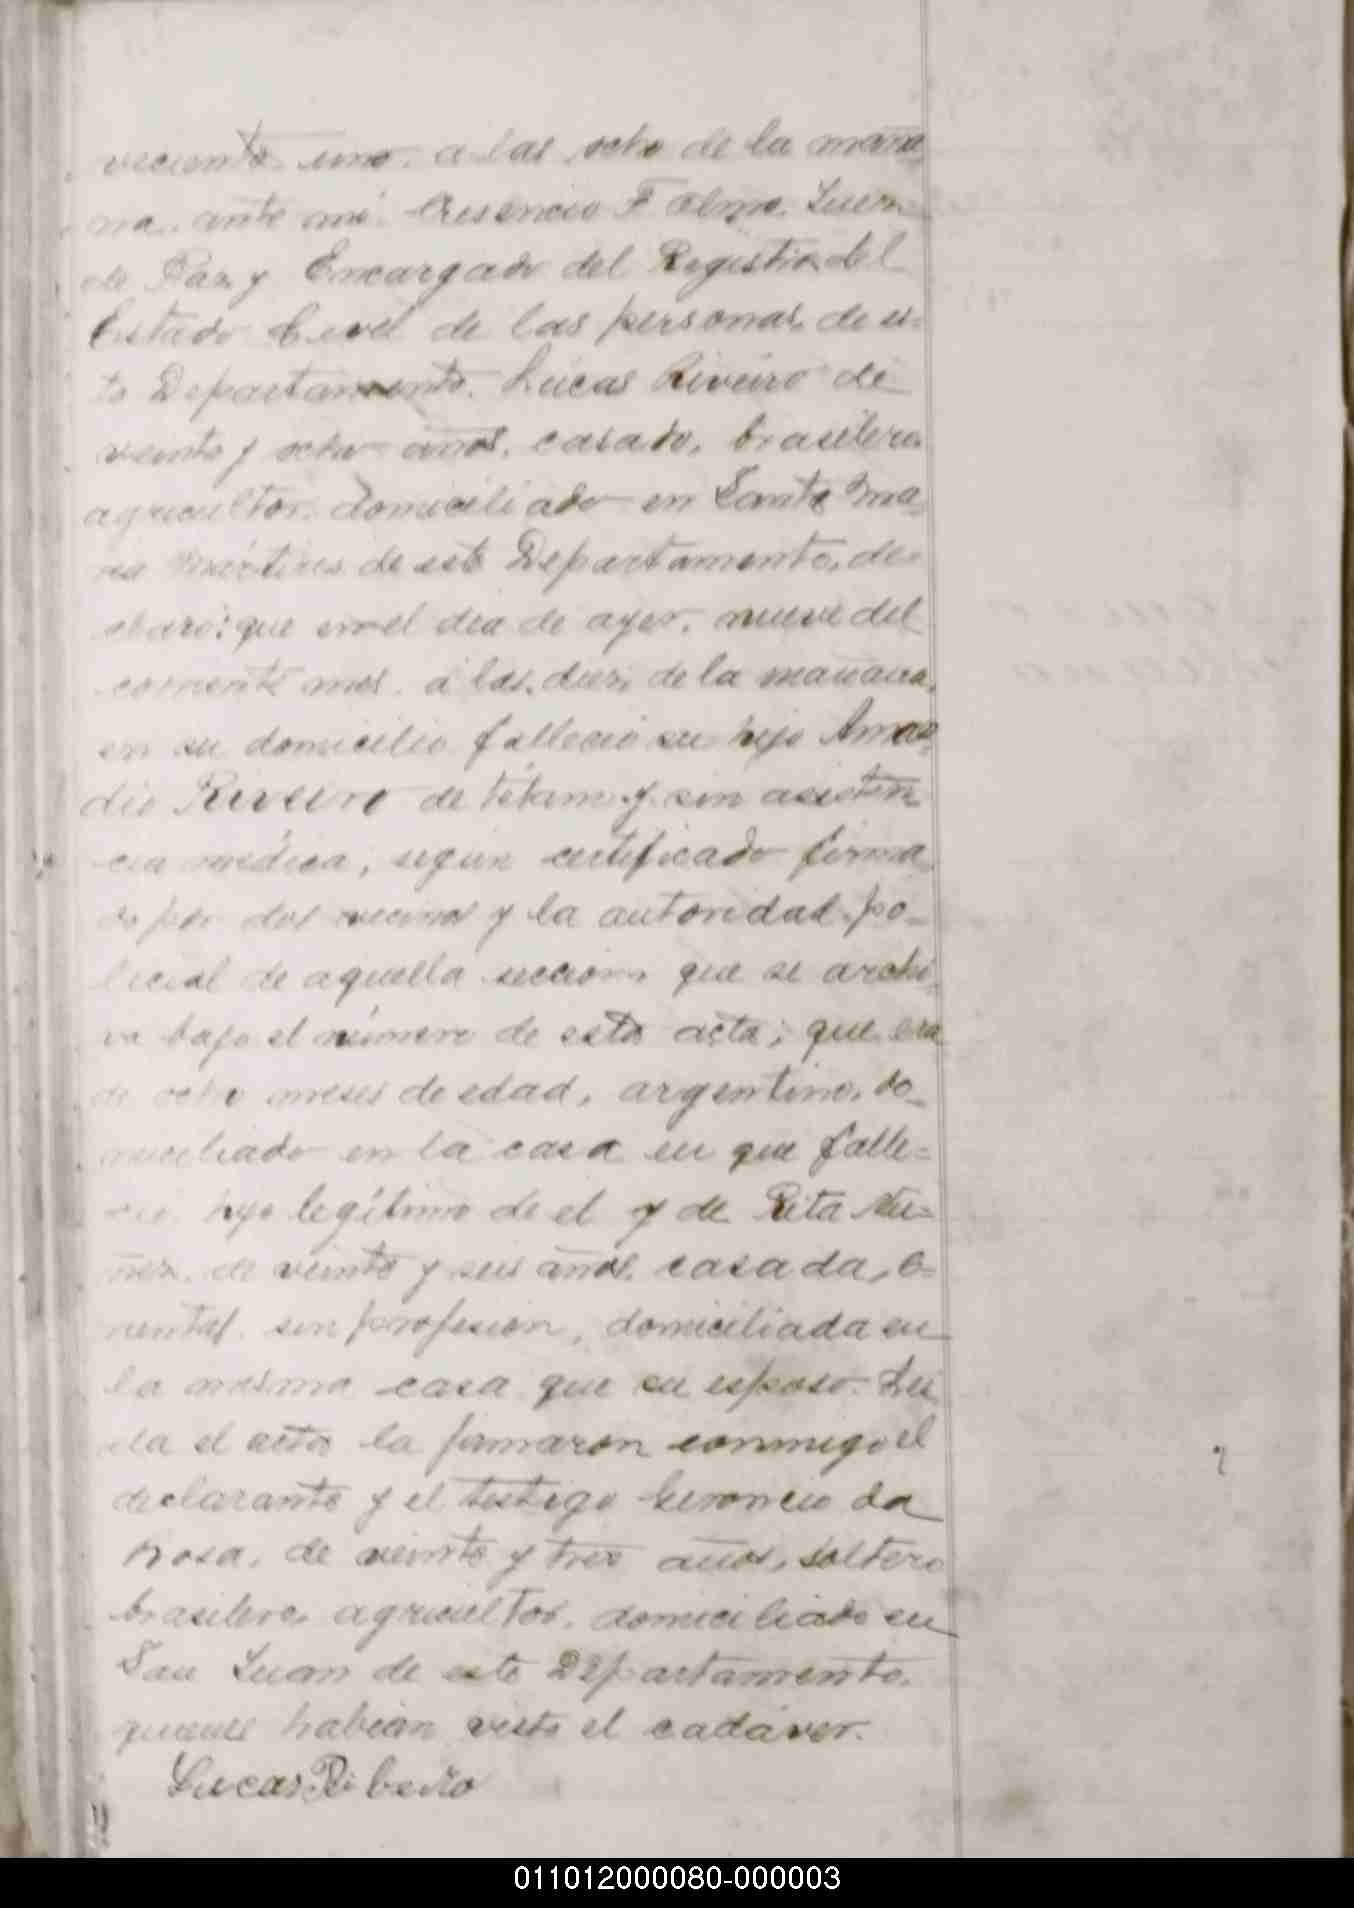 vecientos uno, a las ocho de la maña
na, ante mí F Juez
de Paz y Encargado del Registro del
Estado Civil de las personas de es-
te Departamento, Lucas Riveiro de
veinte y ocho años, casado, brasilero
agricultor, domiciliado en Santa Ma
ria Mártires de este Departamento, de-
claró: que en el dia de ayer, nueve del
corriente mes, a las diez de la mañana,
en su domicilio fallecio su hijo Ama-
dio Riveiro de tétano y sin asisten
cia médica, segun certificado firma
do por dos vecinos y la autoridad po-
licial de aquella seccion, que se archi
va bajo el número de esta acta; que era
de ocho meses de edad, argentino, do-
miciliado en la casa en que falle-
ció, hijo legítimo de el y de Rita Nu-
ñez, de veinte y seis años, casada, o-
riental, sin profesion, domiciliada en
la misma casa que su esposo. Lei
da el acta la firmaron conmigo el
declarante y el testigo Geroncio da
Rosa, de veinte y tres años, soltero
brasilero, agricultor, domiciliado en
San Juan de este Departamento,
quienes habian visto el cadáver.
Lucas Ribeiro
011012000080-000003